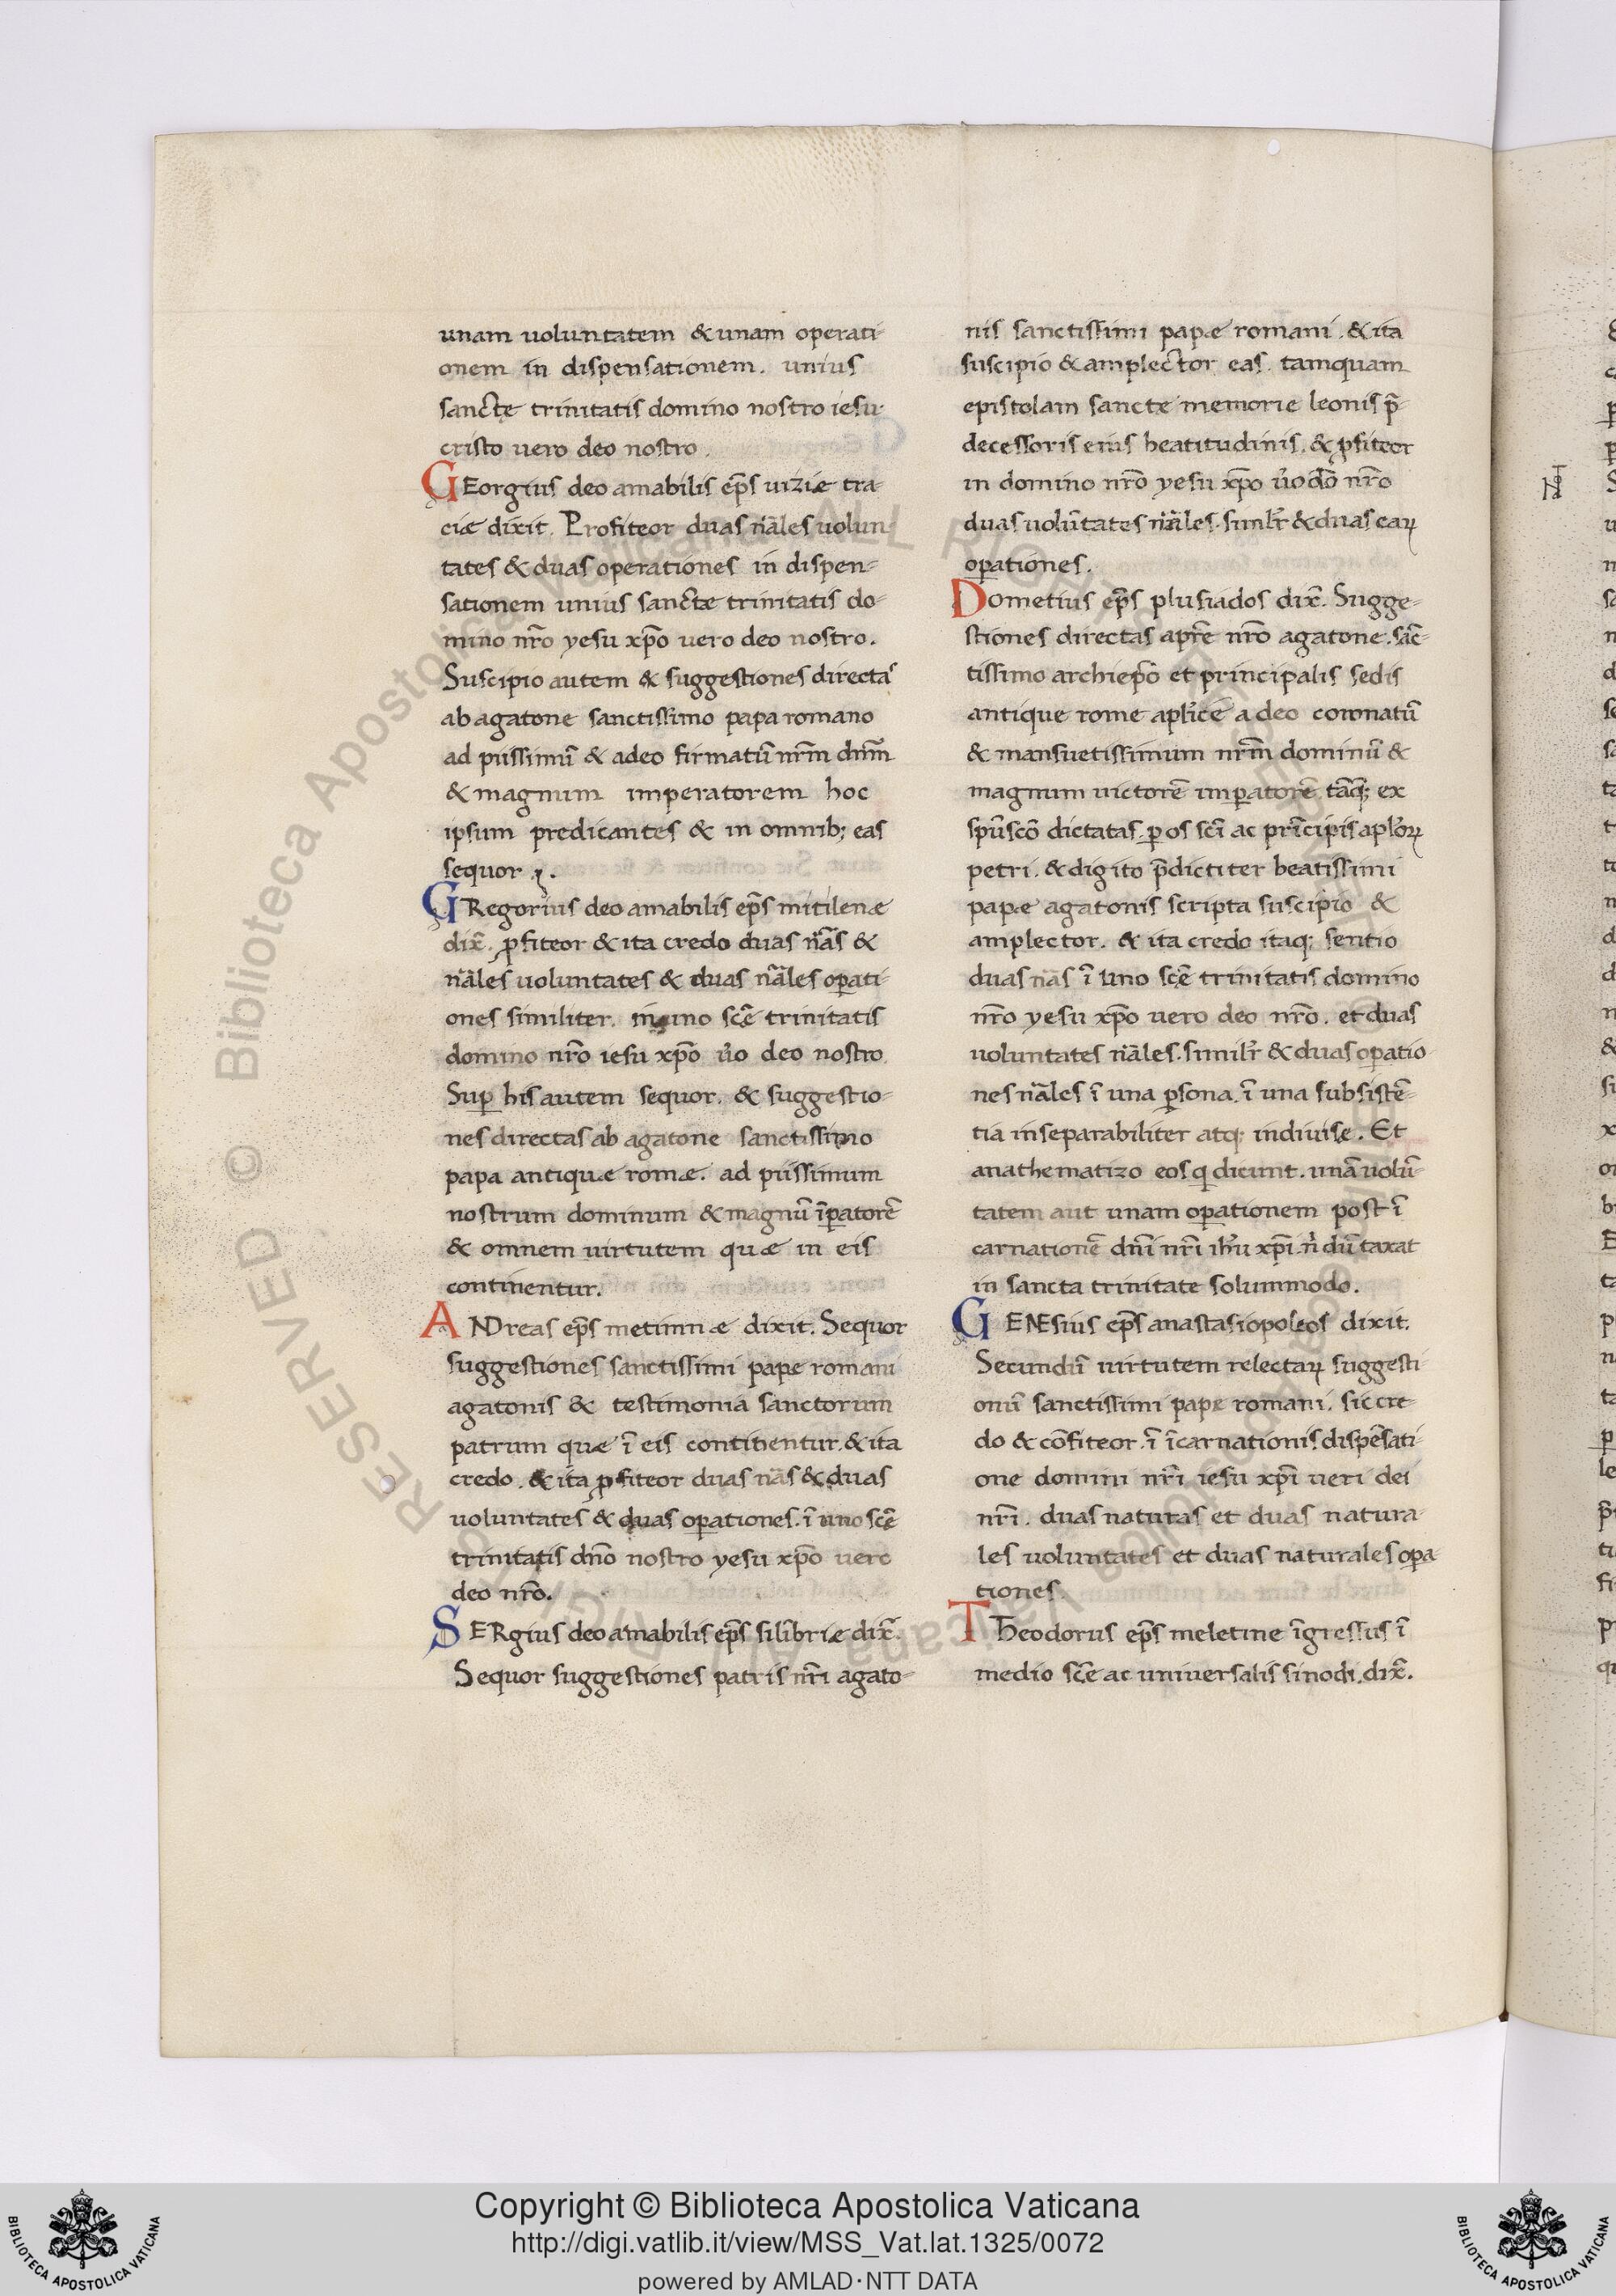 unam uoluntatem & unam operati-
onem in dispensationem. unius
sanctę trinitatis domino nostro iesu
cristo uero deo nostro.
GEorgius deo amabilis ep̃s uiziæ tra-
ciæ dixit. Profiteor duas nãles uolun
tates & duas operationes in dispen-
sationem unius sanctæ trinitatis do-
mino nr̃o yesu xp̃o uero deo nostro.
Suscipio autem & suggestiones directas
ab agatone sanctissimo papa romano
ad piissimũ & adeo firmatũ nr̃m dñm
& magnum imperatorem hoc
ipsum predicantes & in omnib; eas
sequor.
GRegorius deo amabilis ep̃s mitilenæ
dix̃. ꝓfiteor & ita credo duas nãs &
nãles uoluntates & duas nãles oꝑati-
ones similiter. in uno scẽ trinitatis
domino nr̃o iesu xp̃o ũo deo nostro
Suꝑ his autem sequor. & suggestio-
nes directas ab agatone sanctissimo
papa antiquæ romæ. ad piissimum
nostrum dominum & magnũ ĩꝑatorẽ
& omnem uirtutem quæ in eis
continentur.
ANDreas ep̃s metimnæ dixit. Sequor
suggestiones sanctissimi pape romani
agatonis & testimonia sanctorum
patrum quæ ĩ eis continentur. & ita
credo. & ita ꝓfiteor duas nãs & duas
uoluntates & duas oꝑationes. ĩ uno scẽ
trinitatis dño nostro yesu xp̃o uero
deo nr̃o.
SERgius deo amabilis ep̃s silibriæ dix̃.
Sequor suggestiones patris nr̃i agato-
nis sanctissimi papæ romani. & ita
suscipio & amplector eas. tamquam
epistolam sancte memorie leonis p̃-
decessoris eius beatitudinis. & ꝓfiteor
in domino nr̃o yesu xp̃o ũo dõ nr̃o
duas uolũtates nãles. simlr̃ & duas eaꝝ
oꝑationes.
Dometius ep̃s plusiados dix̃. Sugge-
stiones directas apr̃e nr̃o agatone. sãc-
tissimo archiep̃o et principalis sedis
antique rome apl̃ice a deo coronatũ
& mansuetissimum nr̃m dominũ &
magnum uictorẽ imꝑatorẽ tãq; ex
spũscõ dictatas. ꝑ os scĩ ac prĩcipis apl̃oꝝ
petri. & digito p̃dicti ter beatissimi
papæ agatonis scripta suscipio &
amplector. & ita credo itaq; sentio
duas nãs ĩ uno scẽ trinitatis domino
nr̃o yesu xp̃o uero deo nr̃o. et duas
uoluntates nãles. similr̃ & duas oꝑatio
nes nãles ĩ una ꝑsona. ĩ una subsistẽ-
tia inseparabiliter atq; indiuise. Et
anathematizo eos q dicunt. unã uolũ-
tatem aut unam oꝑationem post ĩ
carnationẽ dñi nr̃i ihũ xp̃i. ñ dũ taxat
in sancta trinitate solummodo.
GENEsius ep̃s anastasiopoleos dixit.
Secundũ uirtutem relectaꝝ suggesti-
onũ sanctissimi pape romani. sic cre-
do & cõfiteor. ĩ ĩcarnationis dispẽsati-
one domini nr̃i iesu xp̃i ueri dei
nr̃i. duas naturas et duas natura-
les uoluntates et duas naturales oꝑa
tiones.
Theodorus ep̃s meletine ĩgressus ĩ
medio scẽ ac uniuersalis sinodi. dix̃.
© Biblioteca Apostolica Vaticana
Copyright © Biblioteca Apostolica Vaticana
http://digi.vatlib.it/view/MSS_Vat.lat.1325/0072
powered by AMLAD·NTT DATA
BIBLIOTECA APOSTOLICA VATICANA
BIBLIOTECA APOSTOLICA VATICANA